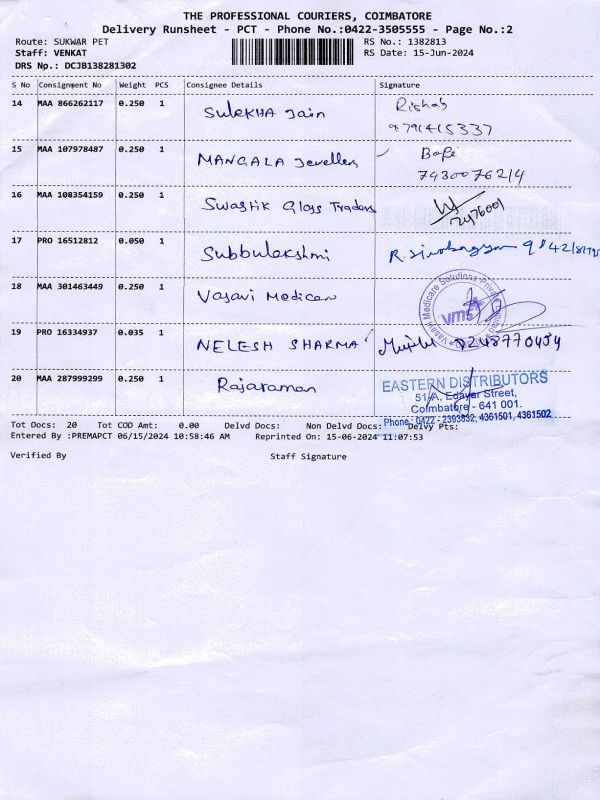 THE PROFESSIONAL COURIERS, COIMBATORE
Delivery Runsheet - PCT - Phone No.:0422-3505555 - Page No.:2
Route: SUKWAR PET
RS No.: 1382813
Staff: VENKAT
RS Date: 15-Jun-2024
DRS No.: DCJB138281302
S No Consignment No Weight PCS Consignee Details Signature
14 MAA 866262117 0.250 1 SuleKHA Jain Rishab
9791415337
15 MAA 107978487 0.250 1 MANGALA Jewellers
7930076214
16 MAA 108354159 0.250 1 Swastik Glass Traders
2476001
17 PRO 16512812 0.050 1 Subbulakshmi
18 MAA 301463449 0.250 1 Vasavi Medicare
Vasavi Medicare Solutions Private
vms
19 PRO 16334937 0.035 1 NELESH SHARMA
20 MAA 287999299 0.250 1 Rajaraman
EASTERN DISTRIBUTORS
51-A, Edayar Street,
Coimbatore - 641 001.
Phone : 0422 - 2393832, 4361501, 4361502
Tot Docs: 20 Tot COD Amt: 0.00 Delvd Docs: Non Delvd Docs: Delvy Pts:
Entered By :PREMAPCT 06/15/2024 10:58:46 AM Reprinted On: 15-06-2024 11:07:53
Verified By Staff Signature